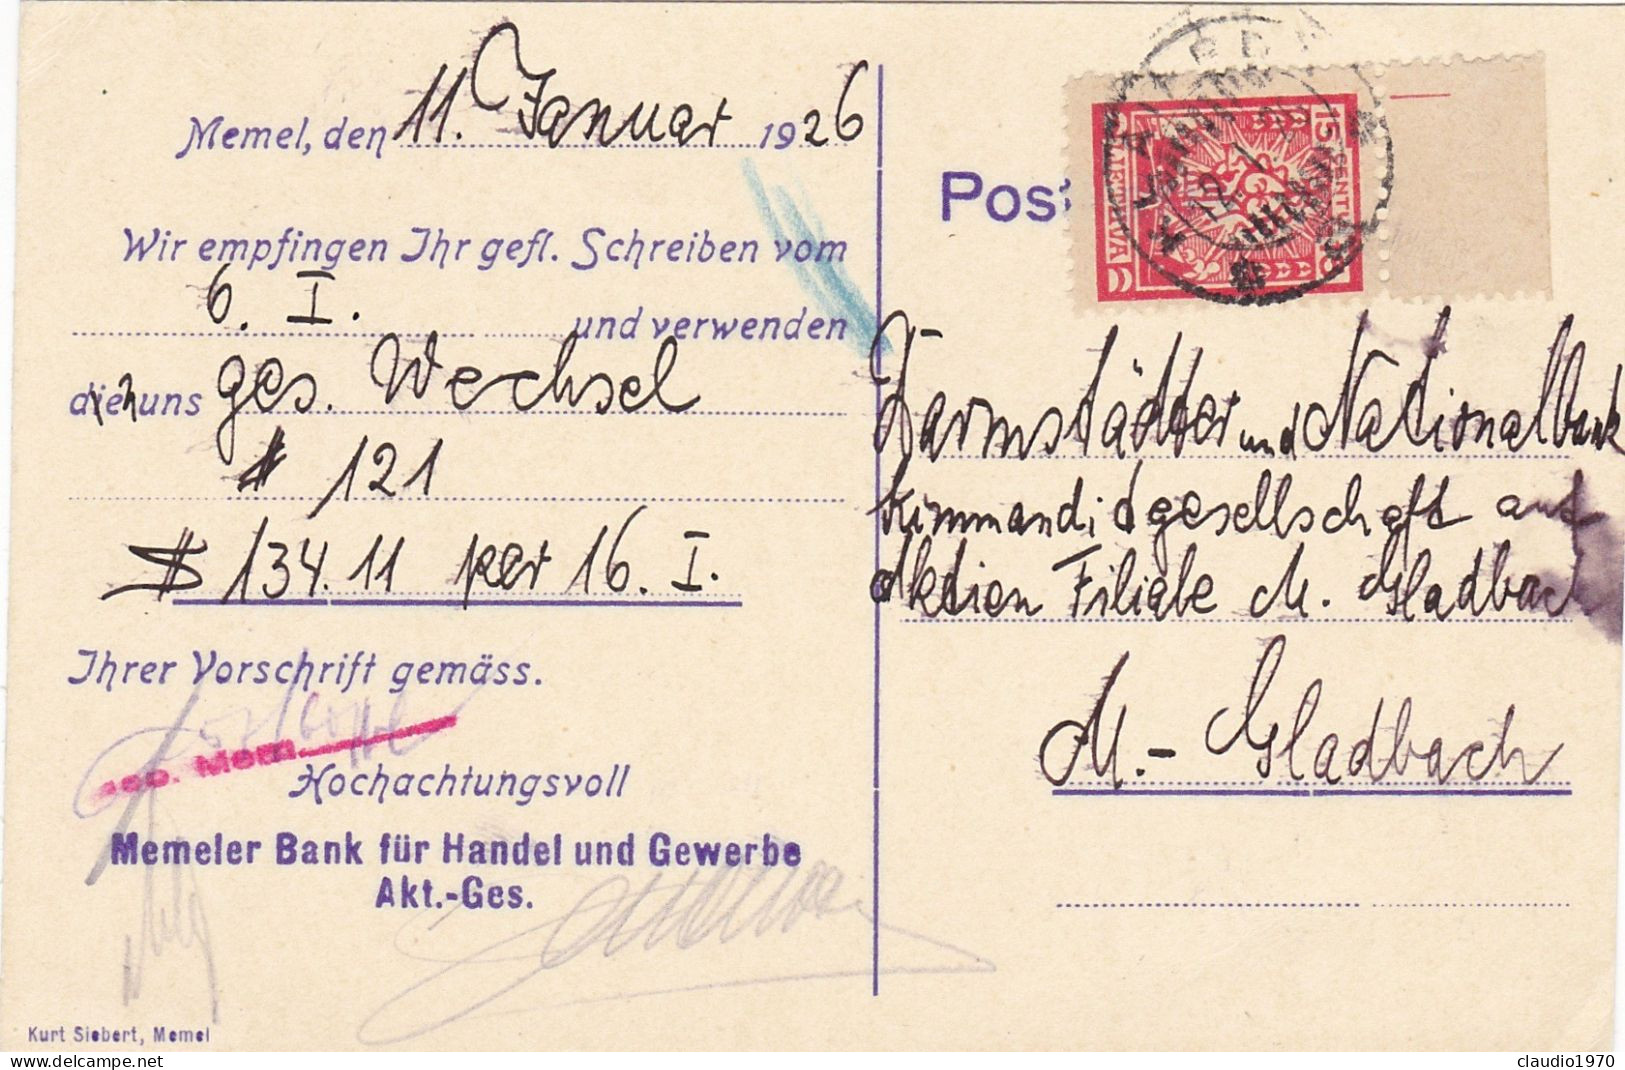 Memel, den 11. Januar 1926
Wir empfingen Ihr gefl. Schreiben vom
6. I. und verwenden
den uns ges. Wechsel
# 121
$ 134.11 per 16. I.
Ihrer Vorschrift gemäss.
Hochachtungsvoll
Memeler Bank für Handel und Gewerbe
Akt.-Ges.
Kurt Siebert, Memel
Post
15 CENT 15
LIETUVA
12
Darmstädter und Nationalbank
Kommanditgesellschaft auf
Aktien Filiale M. Gladbach
M.-Gladbach
delcampe.net
claudio1970